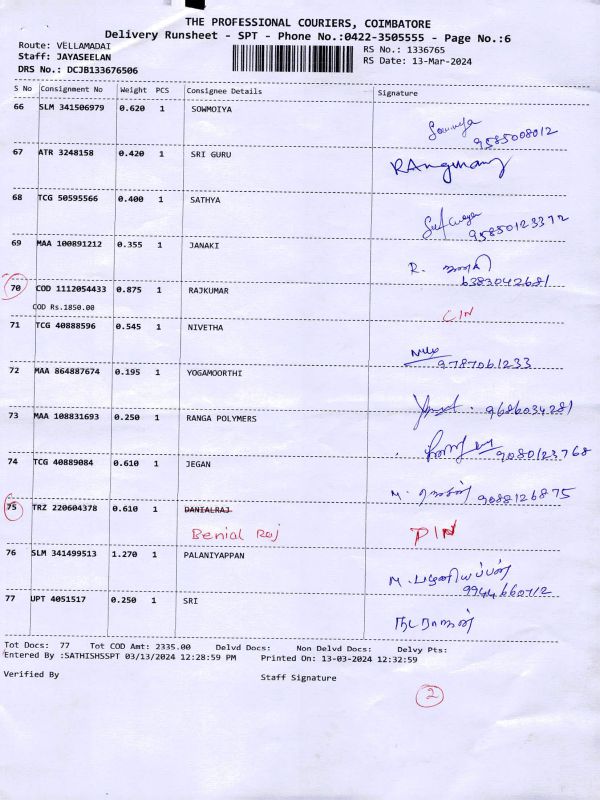 THE PROFESSIONAL COURIERS, COIMBATORE
Delivery Runsheet - SPT - Phone No.:0422-3505555 - Page No.:6
Route: VELLAMADAI
RS No.: 1336765
Staff: JAYASEELAN
RS Date: 13-Mar-2024
DRS No.: DCJB133676506
S No Consignment No Weight PCS Consignee Details Signature
66 SLM 341506979 0.620 1 SOWMOIYA
9585008012
67 ATR 3248158 0.420 1 SRI GURU
68 TCG 50595566 0.400 1 SATHYA
95850123372
69 MAA 100891212 0.355 1 JANAKI
R. ஜானகி
6383042681
70 COD 1112054433 0.875 1 RAJKUMAR
COD Rs.1850.00
CIN
71 TCG 40888596 0.545 1 NIVETHA
9787061233
72 MAA 864887674 0.195 1 YOGAMOORTHI
9686034281
73 MAA 108831693 0.250 1 RANGA POLYMERS
9080123768
74 TCG 40889084 0.610 1 JEGAN
9088126875
75 TRZ 220604378 0.610 1 DANIALRAJ
Benial Raj DIN
76 SLM 341499513 1.270 1 PALANIYAPPAN
M. பழனியப்பன்
9944660712
77 UPT 4051517 0.250 1 SRI
நடராஜன்
Tot Docs: 77 Tot COD Amt: 2335.00 Delvd Docs: Non Delvd Docs: Delvy Pts:
Entered By :SATHISHSSPT 03/13/2024 12:28:59 PM Printed On: 13-03-2024 12:32:59
Verified By Staff Signature
2